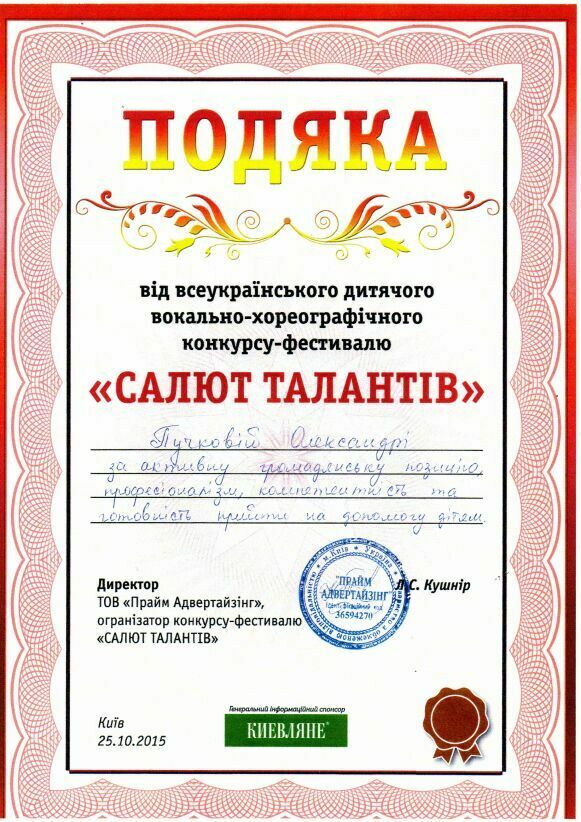 ПОДЯКА
від всеукраїнського дитячого
вокально-хореографічного
конкурсу-фестивалю
«САЛЮТ ТАЛАНТІВ»
Пучковій Олександрі
за активну громадянську позицію,
професіоналізм, компетентність та
готовність прийти на допомогу дітям.
Директор
Л.С. Кушнір
ТОВ «Прайм Адвертайзінг»,
огранізатор конкурсу-фестивалю
«САЛЮТ ТАЛАНТІВ»
м.Київ * Україна *
"ПРАЙМ
АДВЕРТАЙЗІНГ"
код
36594270
Генеральний інформаційний спонсор
КИЕВЛЯНЕ®
Київ
25.10.2015